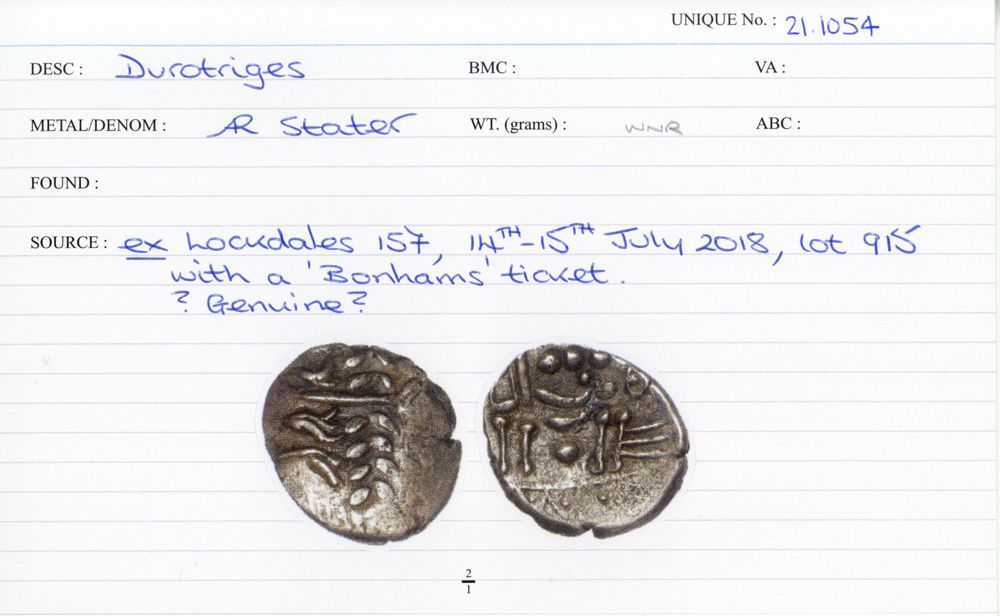 UNIQUE No. : 21.1054
DESC : Durotriges BMC : VA :
METAL/DENOM : AR Stater WT. (grams) : WNR ABC :
FOUND :
SOURCE : ex Lockdales 157, 14TH-15TH July 2018, lot 915
with a 'Bonhams' ticket.
? Genuine?
2
1